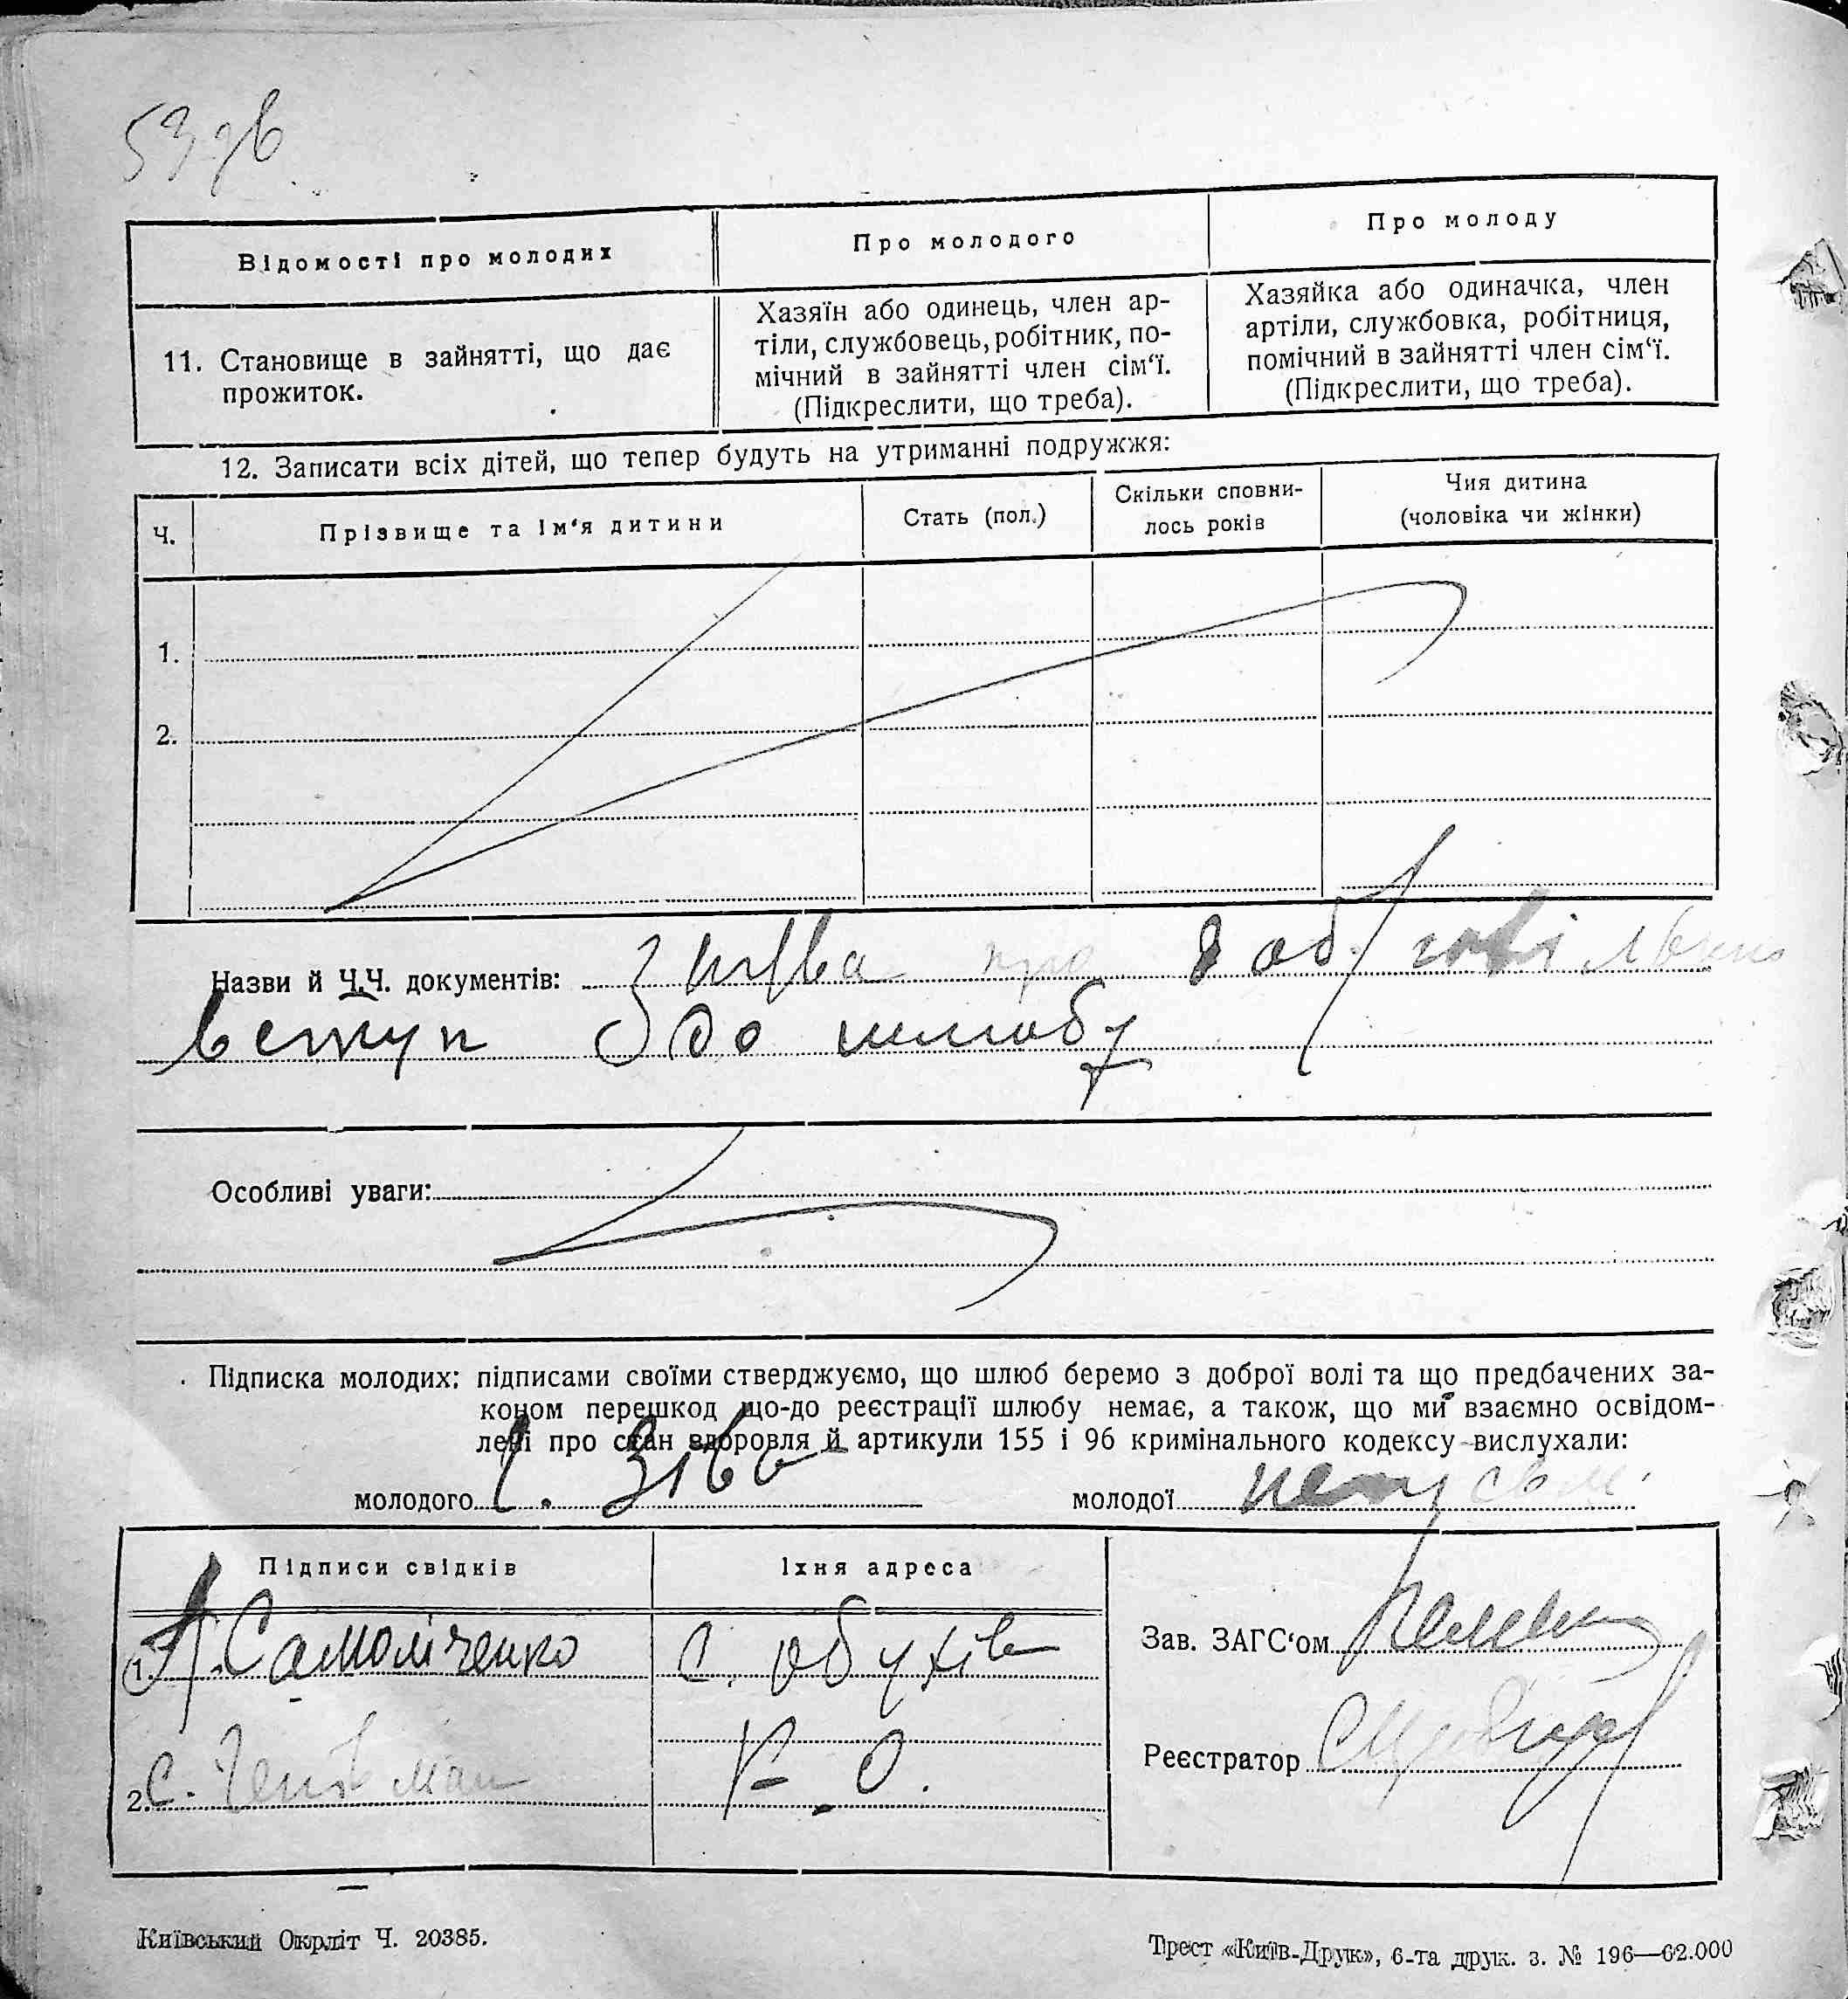 Відомості про молодих
Про молодого
Про молоду
11. Становище в зайнятті, що дає
прожиток.
Хазяїн або одинець, член ар-
тіли, службовець, робітник, по-
мічний в зайнятті член сім‘ї.
(Підкреслити, що треба).
Хазяйка або одиначка, член
артіли, службовка, робітниця,
помічний в зайнятті член сім‘ї.
(Підкреслити, що треба).
12. Записати всіх дітей, що тепер будуть на утриманні подружжя:
Ч.
Прізвище та ім‘я дитини
Стать (пол.)
Скільки сповни-
лось років
Чия дитина
(чоловіка чи жінки)
1.
2.
Назви й Ч.Ч. документів: про
вступ до шлюбу
Особливі уваги:
Підписка молодих: підписами своїми стверджуємо, що шлюб беремо з доброї волі та що предбачених за-
коном перешкод що-до реєстрації шлюбу немає, а також, що ми взаємно освідом-
лені про стан здоровля й артикули 155 і 96 кримінального кодексу вислухали:
молодого
молодої
Підписи свідків
Їхня адреса
1. Самойліченко
с. Обухів
2. С.
К. О.
Зав. ЗАГС‘ом
Реєстратор
Київський Окрліт Ч. 20385.
Трест «Київ-Друк», 6-та друк. з. № 196—62.000